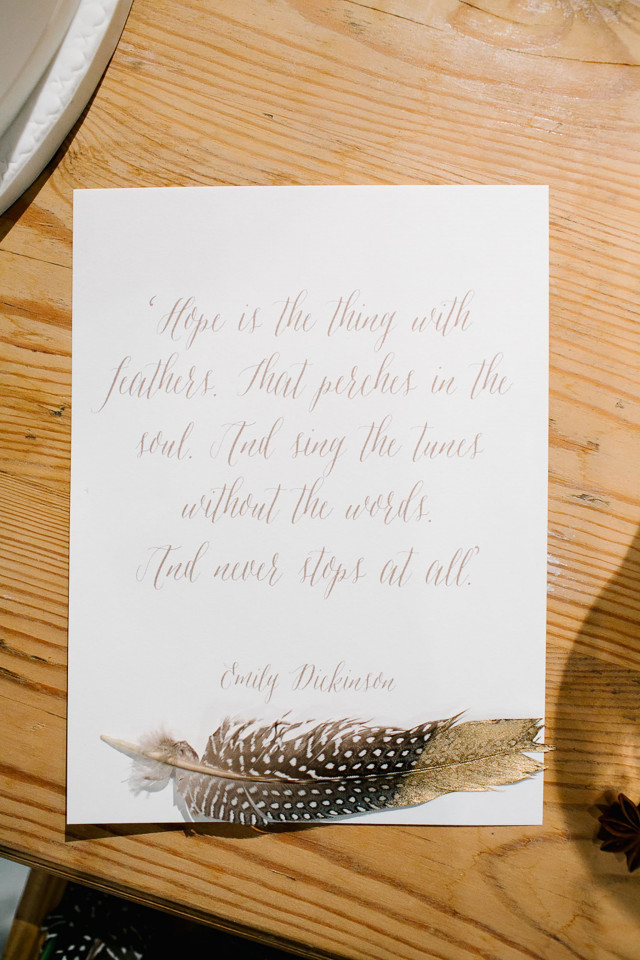 ‘Hope is the thing with
feathers. That perches in the
soul. And sing the tunes
without the words.
And never stops at all’.
Emily Dickinson